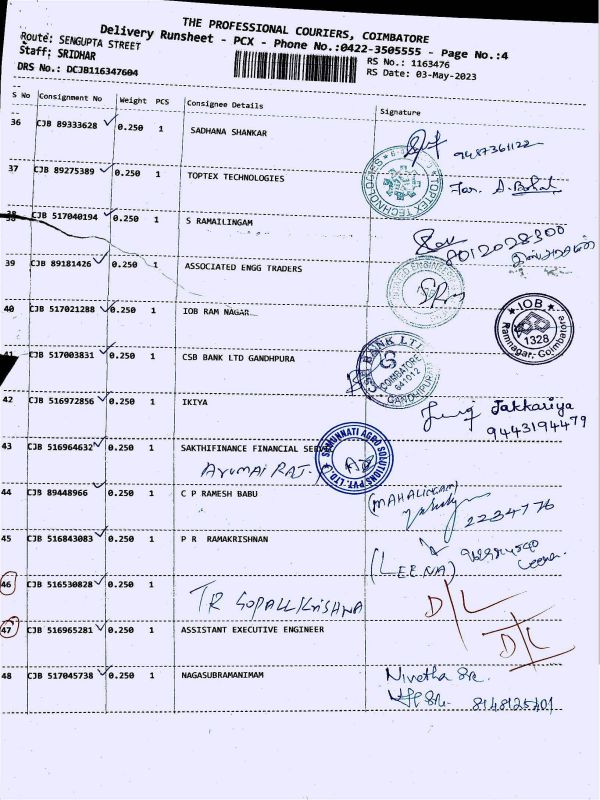 THE PROFESSIONAL COURIERS, COIMBATORE
Delivery Runsheet - PCX - Phone No.:0422-3505555 - Page No.:4
Route: SENGUPTA STREET
RS No.: 1163476
Staff: SRIDHAR
RS Date: 03-May-2023
DRS No.: DCJB116347604
S No Consignment No Weight PCS Consignee Details Signature
36 CJB 89333628 0.250 1 SADHANA SHANKAR
9487361122
37 CJB 89275389 0.250 1 TOPTEX TECHNOLOGIES
TOPTEX TECHNOLOGIES
For.
38 CJB 517040194 0.250 1 S RAMAILINGAM
8012028300
39 CJB 89181426 0.250 1 ASSOCIATED ENGG TRADERS
40 CJB 517021288 0.250 1 IOB RAM NAGAR
IOB
1328
Ramnagar, Coimbatore
41 CJB 517003831 0.250 1 CSB BANK LTD GANDHPURA
CSB BANK LTD
COIMBATORE
641012
GANDHIPURAM
42 CJB 516972856 0.250 1 IKIYA
Jakkariya
9443194479
43 CJB 516964632 0.250 1 SAKTHIFINANCE FINANCIAL SER
SAMUNNATI AGRO SOLUTIONS PVT. LTD.
Arumai RAJ.
44 CJB 89448966 0.250 1 C P RAMESH BABU
(MAHALINGAM)
2234776
45 CJB 516843083 0.250 1 P R RAMAKRISHNAN
(LEENA)
Leena.
46 CJB 516530828 0.250 1 TR GOPALLKRISHNA
D/L
47 CJB 516965281 0.250 1 ASSISTANT EXECUTIVE ENGINEER
D/L
48 CJB 517045738 0.250 1 NAGASUBRAMANIMAM
Nivetha Sr.
8148125401